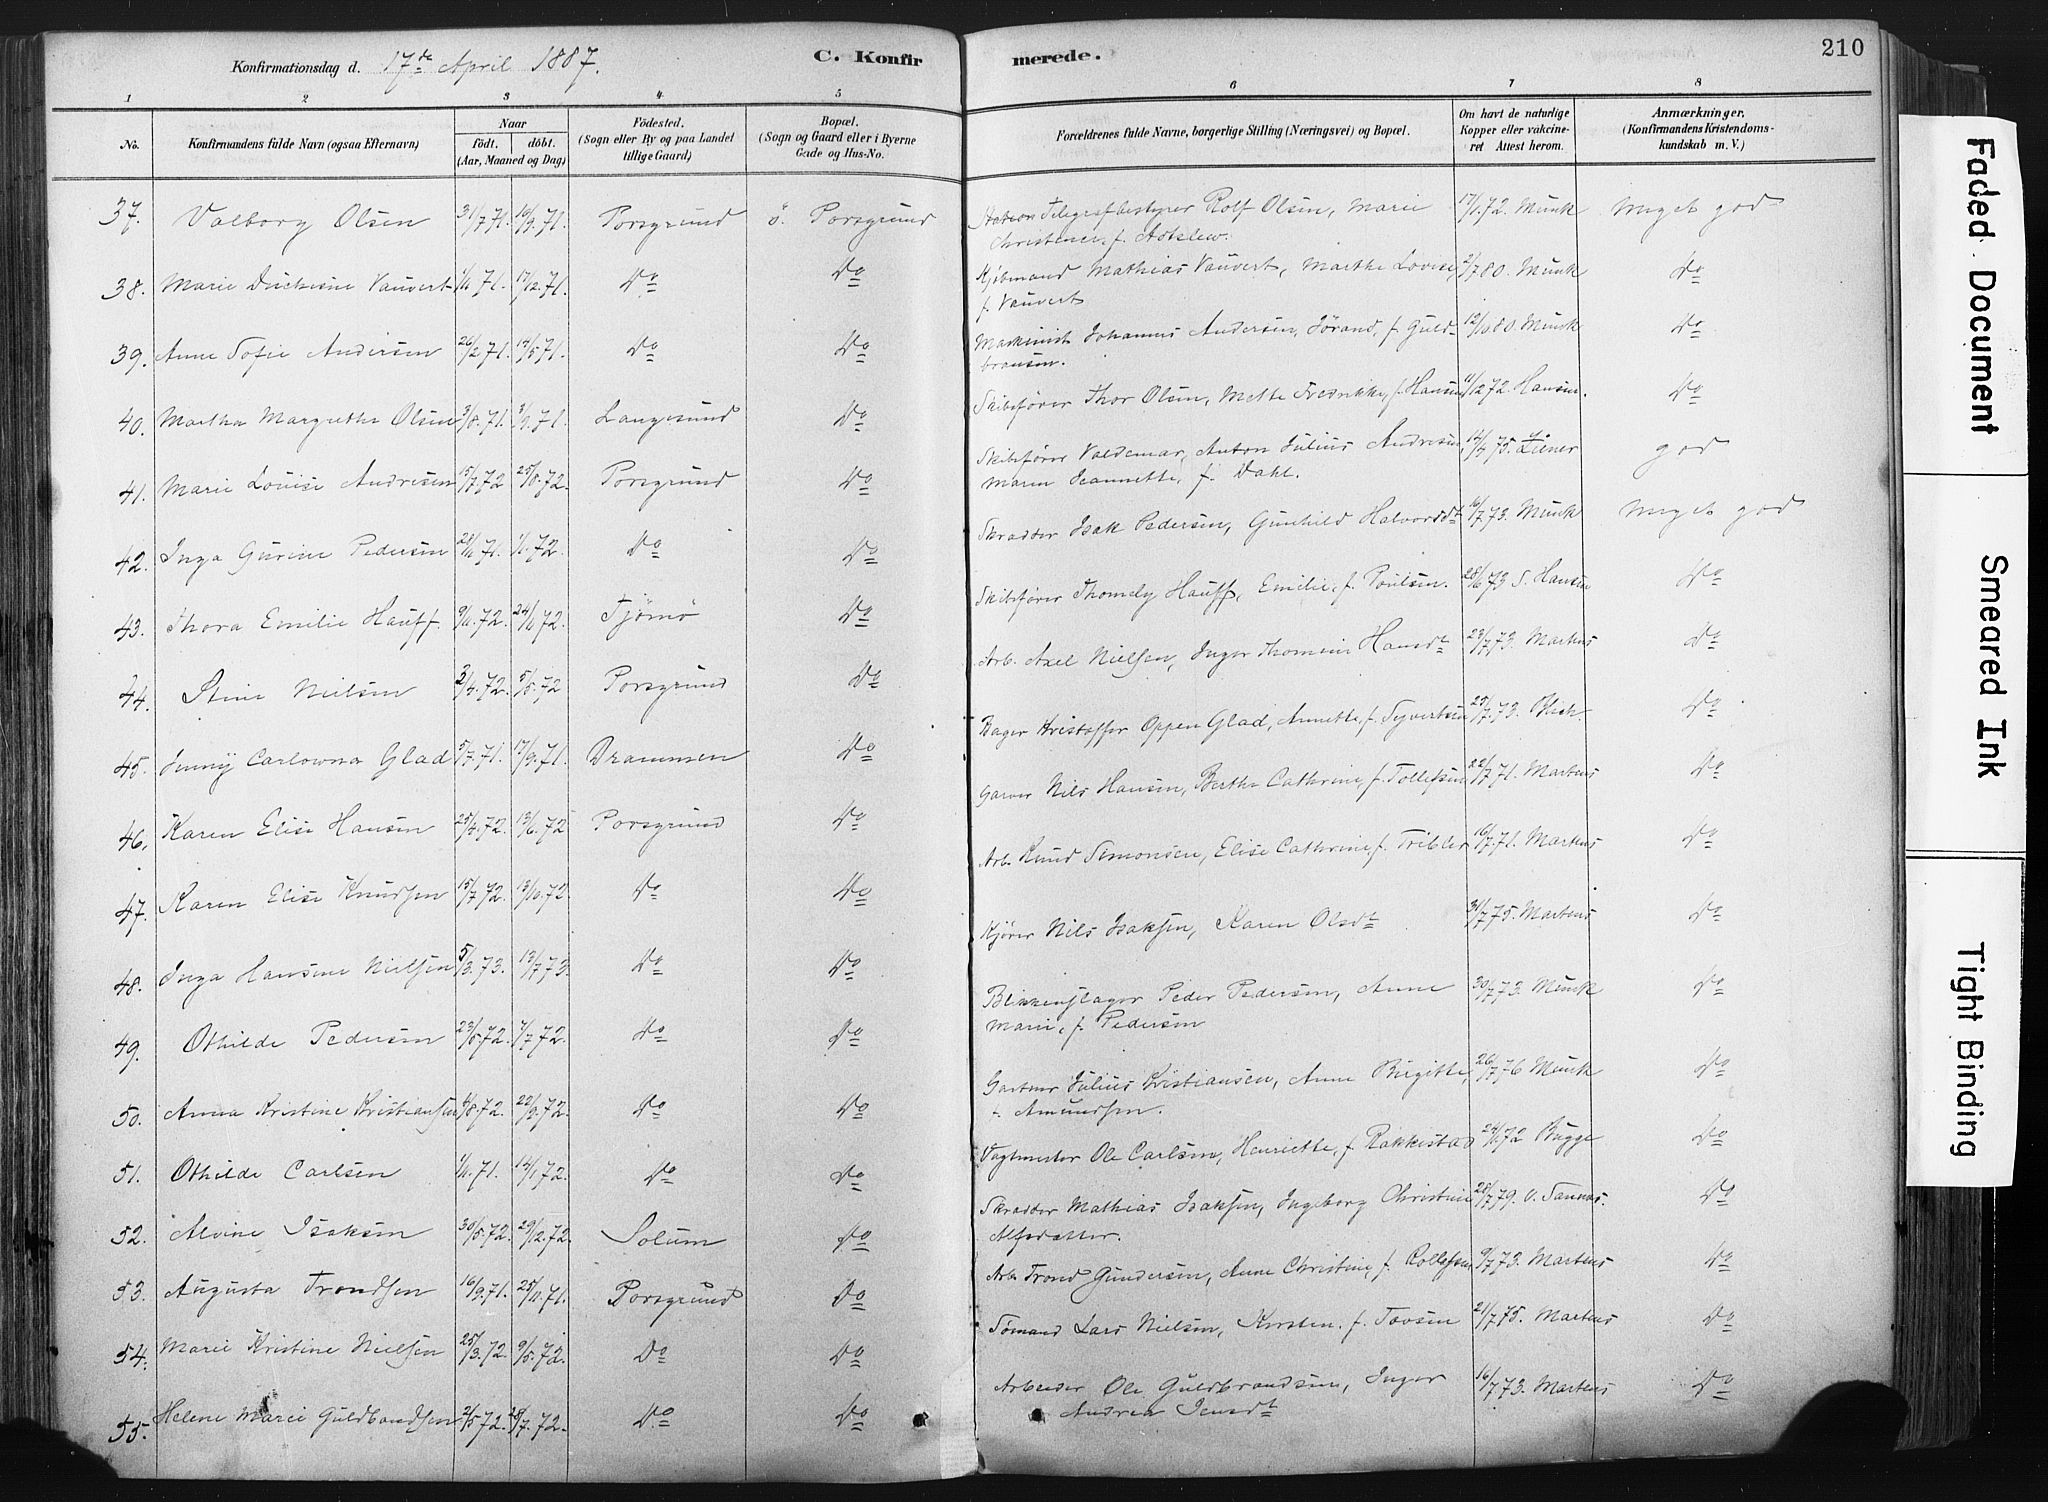 Konfirmationsdag d. 17de April 1887.
C. Konfirmerede.
210
1 2 3 4 5 6 7 8
No. Konfirmandens fulde Navn (ogsaa Efternavn) Naar födt. döbt. (Aar, Maaned og Dag) Födested. (Sogn eller By og paa Landet tillige Gaard) Bopæl. (Sogn og Gaard eller i Byerne Gade og Hus-No. Forældrenes fulde Navne, borgerlige Stilling (Næringsvei) og Bopæl. Om havt de naturlige Kopper eller vakcineret Attest herom. Anmærkninger. (Konfirmandens Kristendomskundskab m. V.)
37. Valborg Olsen 31/7 71. 10/9 71. Porsgrund ö. Porsgrund Telegrafbestyrer Rolf Olsen, Marie 17/1 72. Munk Meget god
38. Marie Vauvert 1/11 71. 17/12 71. Do Do Kjøbmand Mathias Vauvert, Marthe Lovise, f. Vauvert 2/7 80. Munk Do
39. Anne Sofie Andersen 26/2 71. 14/5 71. Do Do Maskinist Johannes Andersen, Jørand, f. Guldbransen. 12/10 80. Munk Do
40. Martha Margrethe Olsen 3/8 71. 3/9 71. Langesund Do Skibsfører Thor Olsen, Mette Fredrikke, f. Hansen 11/12 72. Hansen. Do
41. Marie Louise Andresen 15/7 72 25/8 72. Porsgrund Do Skibsfører Valdemar, Anton Julius Andresen, Maren Jeannette, f. Dahl. 14/4 75. Ziener god
42. Inga Gurine Pedersen 28/11 71. 1/1 72. Do Do Skrædder Isak Pedersen, Gunhild Halvorsdt 16/7 73. Munk Meget god
43. Thora Emilie Hauff. 9/1 72. 24/11 72. Tjømø Do Skibsfører Thomely Hauff, Emilie, f. Poulsen. 28/6 73 S. Hansen Do
44. Stine Nielsen 2/4 72. 5/5 72 Porsgrund Do Arb. Axel Nielsen, Inger Thomine Hansdt 23/7 73. Martens Do
45. Jenny Carlowna Glad 5/7 71. 17/9 71. Drammen Do Bager Kristoffer Oppen Glad, Annette, f. Syvertsen 25/7 73. Blich. Do
46. Karen Elise Hansen 25/4 72. 13/6 72 Porsgrund Do Garver Nils Hansen, Berthe Cathrine, f. Tollefsen 22/7 71. Martens Do
47. Karen Elise Knudsen 15/7 72 13/10 72. Do Do Arb. Knud Simonsen, Elise Cathrine, f. Tribler 16/7 71. Martens Do
48. Inga Hansine Nielsen 5/3 73. 13/7 73. Do Do Kjører Nils Isaksen, Karen Olsdt 31/7 75. Martens Do
49. Othilde Pedersen 23/5 72. 7/7 72. Do Do Blikkenslager Peder Pedersen, Anne Marie, f. Pedersen 30/7 73. Munk Do
50. Anna Kristine Kristiansen 4/8 72. 22/9 72. Do Do Gartner Julius Kristiansen, Anne Birgitte, Amundsen. 26/7 76 Munk Do
51. Othilde Carlsen 1/11 71. 14/1 72. Do Do Vagtmester Ole Carlsen, Henriette, f. Rakkestad 24/11 72 Bugge Do
52. Alvine Isaksen 30/5 72. 29/12 72. Solum Do Skrædder Mathias Isaksen, Ingeborg Christine Alfsdatter. 28/7 79. v. Tannas. Do
53. Augusta Trondsen 16/9 71. 25/11 71. Porsgrund Do Arb. Trond Gundersen, Anne Christine, f. Rollefsen 9/7 73. Martens Do
54. Marie Kristine Nielsen 25/3 72. 9/5 72. Do Do Sømand Lars Nielsen, Kirsten, f. Tovsen 21/7 75. Martens Do
55. Helene Marie Guldbrandsen 2/5 72. 28/7 72. Do Do Arbeider Ole Guldbrandsen, Inger Andrea Jensdt 16/7 73. Martens Do
Faded Document
Smeared Ink
Tight Binding